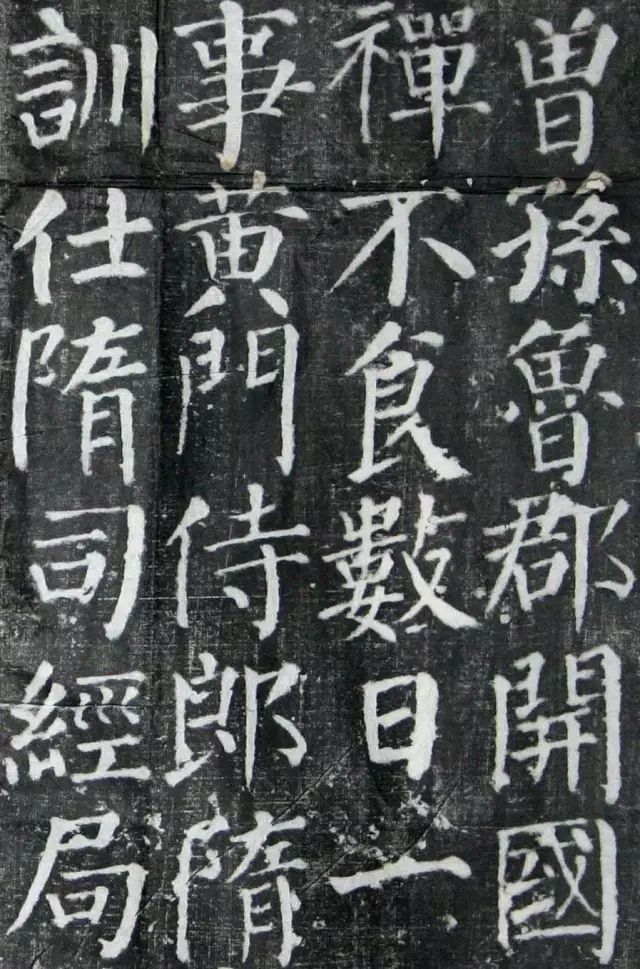 曾孫魯郡開國
禪不食數日一
事黃門侍郎隋
訓仕隋司經局